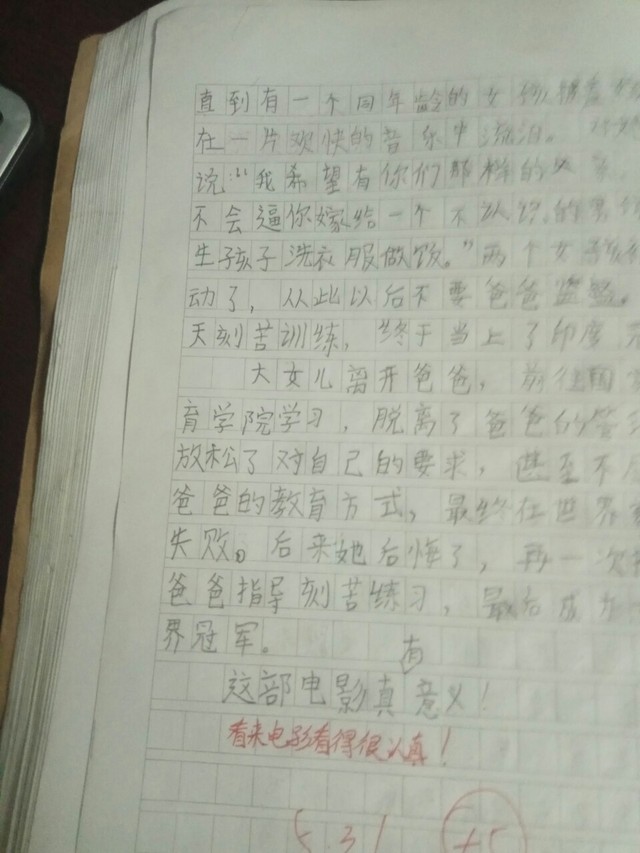 直到有一个同年龄的女孩
在一片欢快的音乐中流泪。
说“我希望有你们那样的父亲
不会逼你嫁给一个不认识的男
生孩子洗衣服做饭。”两个女孩
动了，从此以后不要爸爸监督。
天刻苦训练，终于当上了印度
大女儿离开爸爸，前往国
育学院学习，脱离了爸爸的管
放松了对自己的要求，甚至不
爸爸的教育方式，最终在世界
失败。后来她后悔了，再一次
爸爸指导刻苦练习，最后成为
界冠军。
这部电影真有意义！
看来电影看得很认真！
5.31 +5